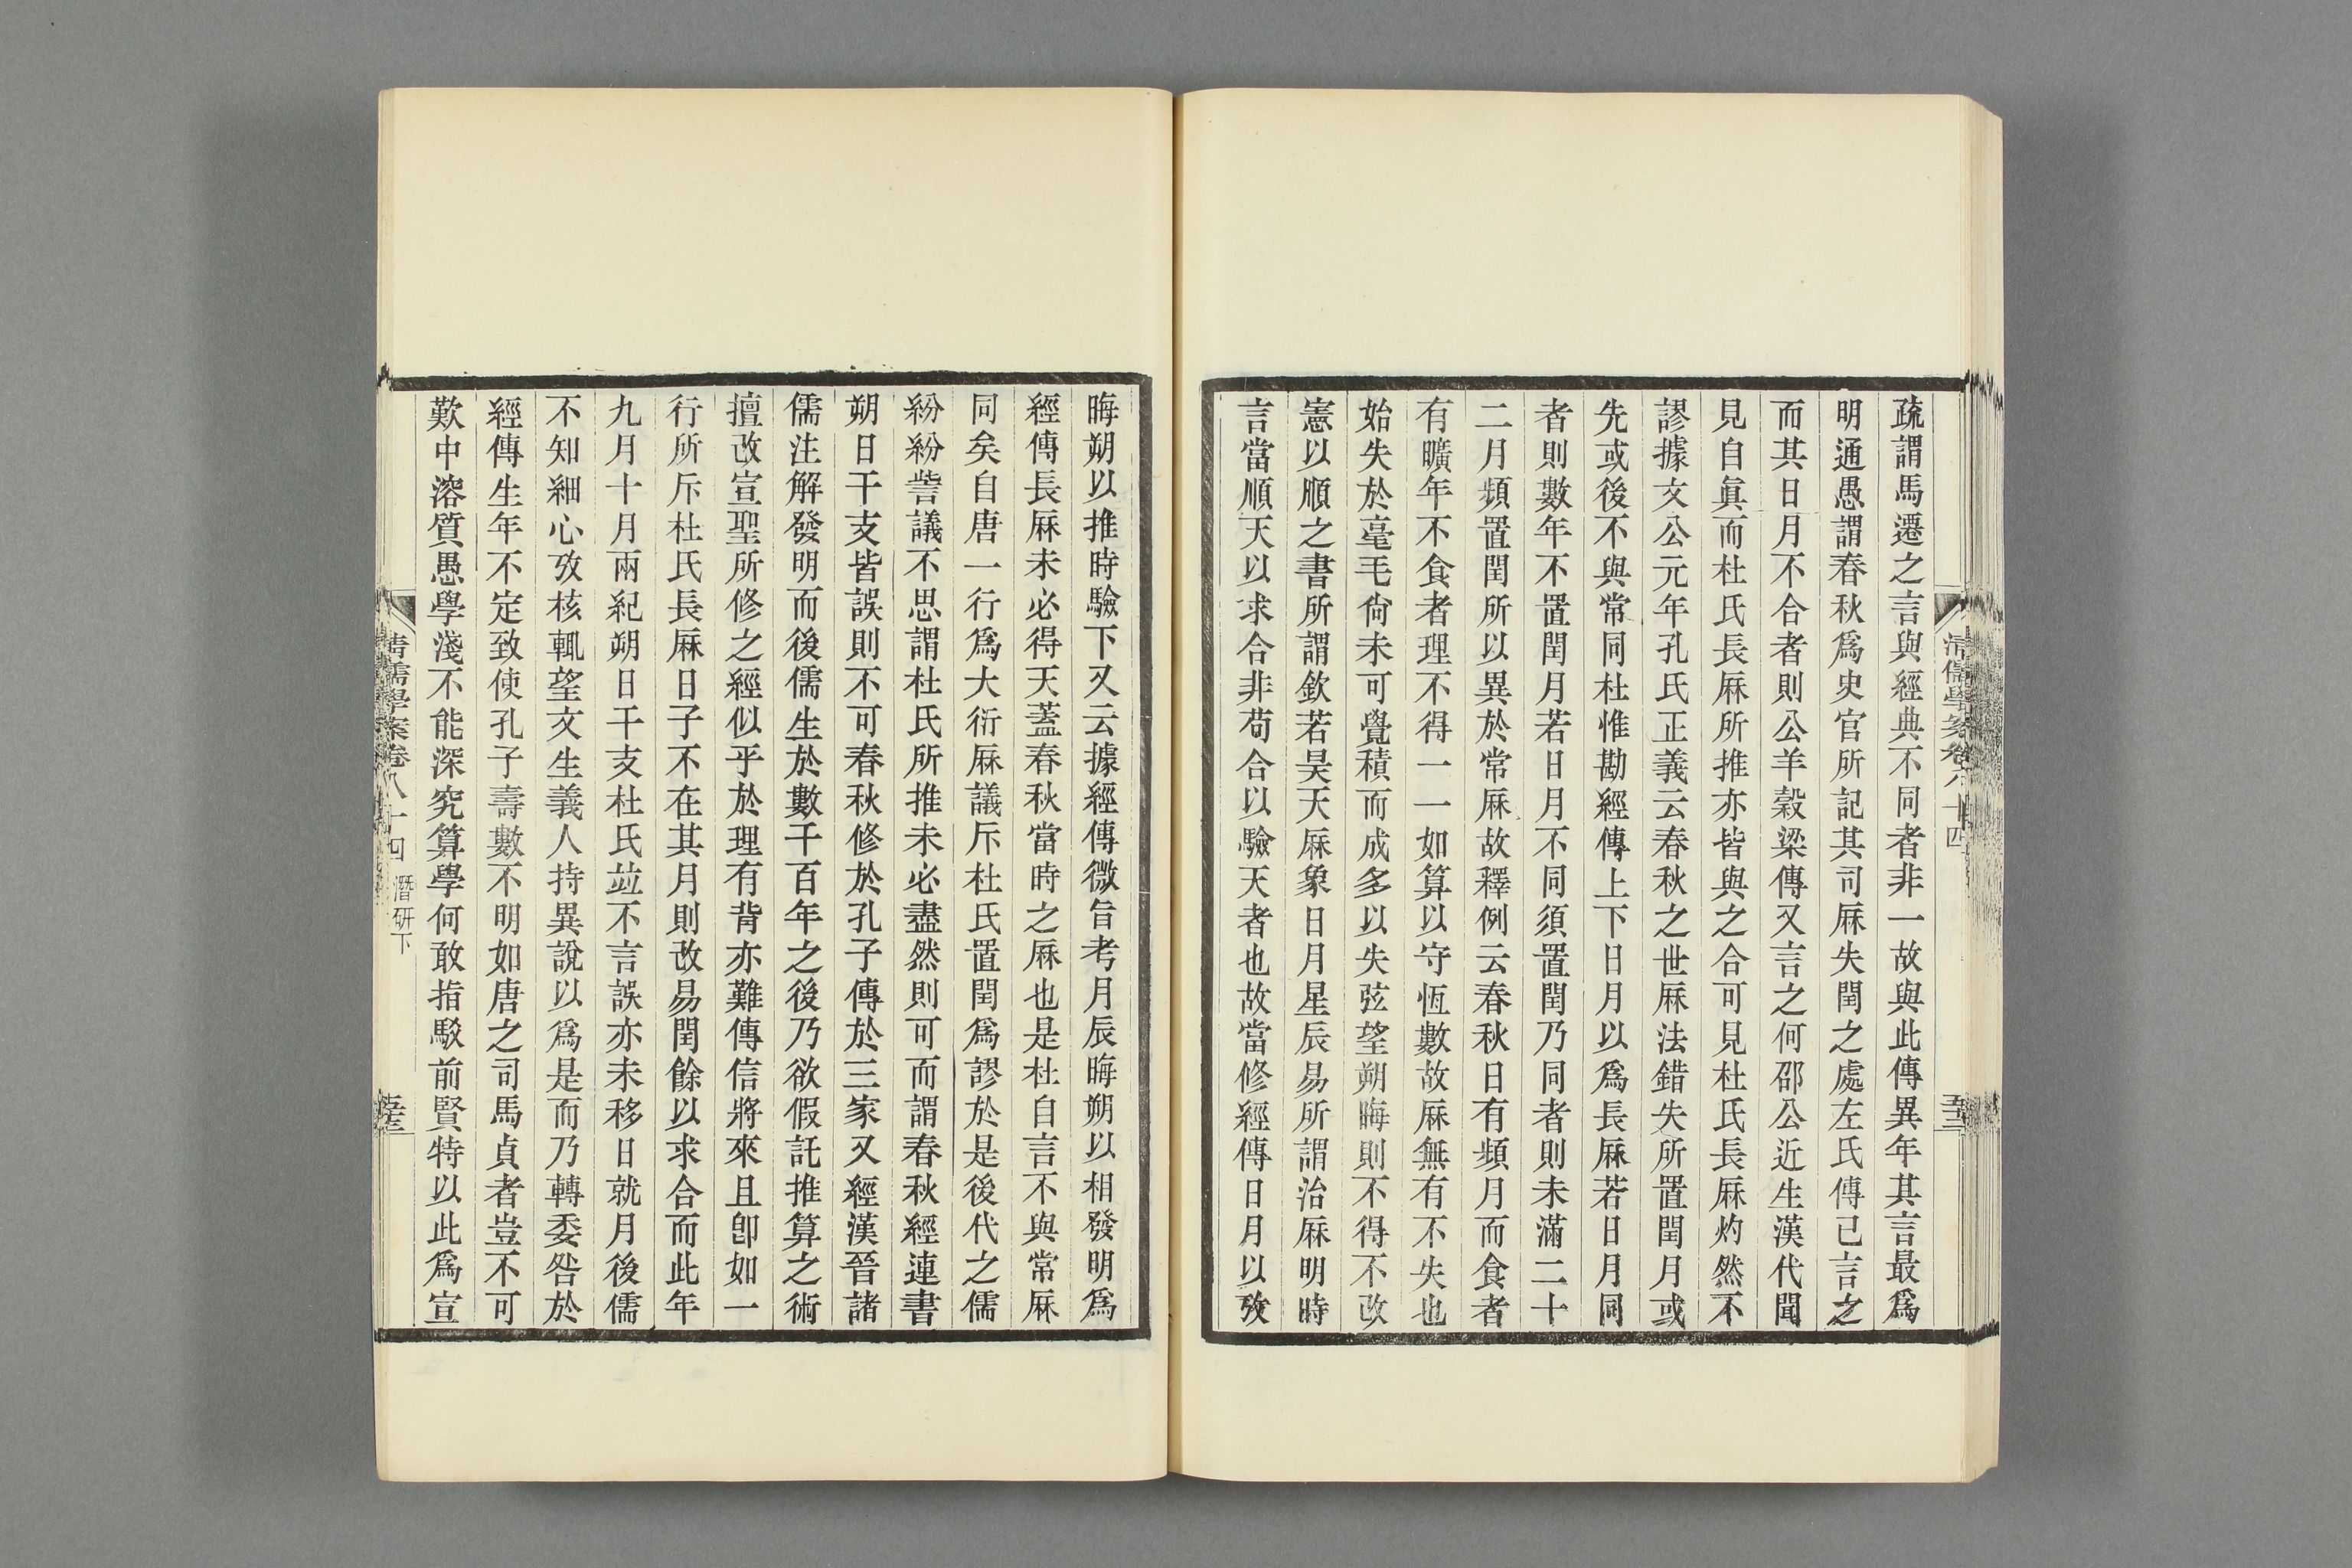 疏謂馬遷之言與經典不同者非一故與此傳異年其言最爲
明通愚謂春秋爲史官所記其司厤失閏之處左氏傳已言之
而其日月不合者則公羊穀梁傳又言之何邵公近生漢代聞
見自眞而杜氏長厤所推亦皆與之合可見杜氏長厤灼然不
謬據文公元年孔氏正義云春秋之世厤法錯失所置閏月或
先或後不與常同杜惟勘經傳上下日月以爲長厤若日月同
者則數年不置閏月若日月不同須置閏乃同者則未滿二十
二月頻置閏所以異於常厤故釋例云春秋日有頻月而食者
有曠年不食者理不得一一如算以守恆數故厤無有不失也
始失於毫毛尙未可覺積而成多以失弦望朔晦則不得不改
憲以順之書所謂欽若昊天厤象日月星辰易所謂治厤明時
言當順天以求合非苟合以驗天者也故當修經傳日月以攷
晦朔以推時驗下又云據經傳微旨考月辰晦朔以相發明爲
經傳長厤未必得天蓋春秋當時之厤也是杜自言不與常厤
同矣自唐一行爲大衍厤議斥杜氏置閏爲謬於是後代之儒
紛紛訾議不思謂杜氏所推未必盡然則可而謂春秋經連書
朔日干支皆誤則不可春秋修於孔子傳於三家又經漢晉諸
儒注解發明而後儒生於數千百年之後乃欲假託推算之術
擅改宣聖所修之經似乎於理有背亦難傳信將來且卽如一
行所斥杜氏長厤日子不在其月則改易閏餘以求合而此年
九月十月兩紀朔日干支杜氏竝不言誤亦未移日就月後儒
不知細心攷核輒望文生義人持異說以爲是而乃轉委咎於
經傳生年不定致使孔子壽數不明如唐之司馬貞者豈不可
歎中溶質愚學淺不能深究算學何敢指駁前賢特以此爲宣
清儒學案卷八十四 潛研下